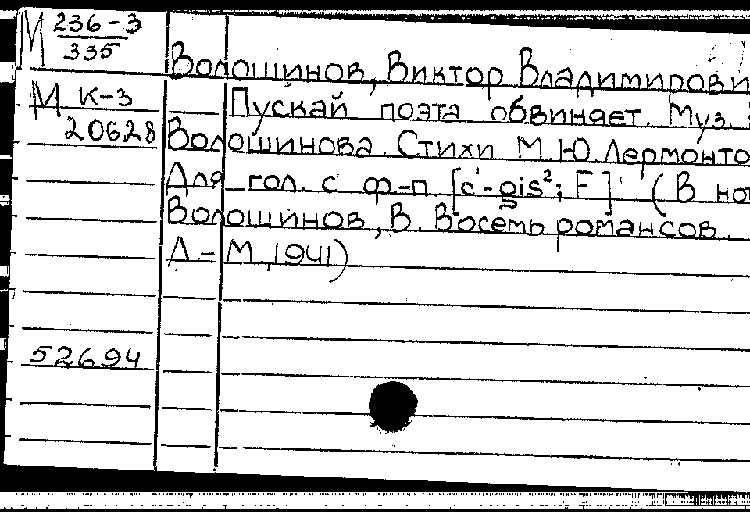 М 236-3
335
Волошинов, Виктор Владимирови
М К-3
Пускай поэта обвиняет. Муз.
20628
Волошинова. Стихи М.Ю. Лермонто
Для гол. с ф-п. [c'-gis²; F] (В но
Волошинов, В. Восемь романсов.
Л.-М., 1941)
52694